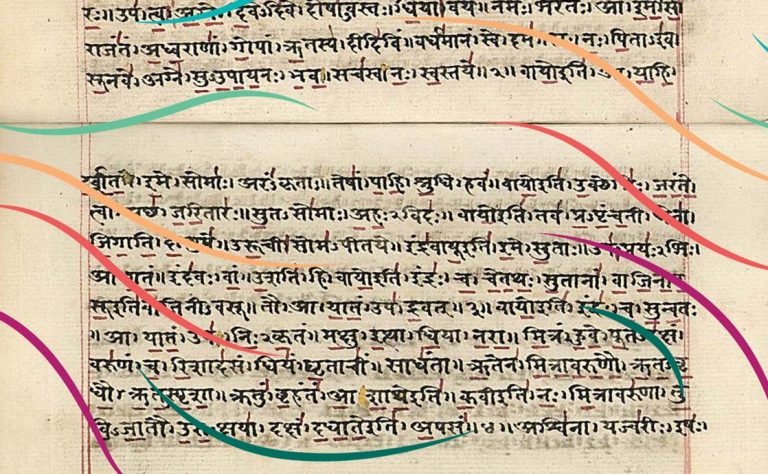 रः॥ उप। त्वा। अग्ने। दिवेऽदिवे। दोषाऽवस्तः। धिया। वयं॥ नमः। भरंतः। आ। इमसि
राजंतं। अध्वराणां। गोपां। ऋतस्य। दीदिविं। वर्धमानं। स्वे। दमे॥ नः। पिताऽइव
सूनवे। अग्ने। सुऽउपायनः। भव। सचस्व। नः। स्वस्तये॥२॥ वायो इति। आ। याहि।
इमे। सोमाः। अरंऽकृताः॥ तेषां। पाहि। श्रुधि। हवं॥ वायो इति। जरंते
त्वां। जरितारः॥ सुतऽसोमाः। अहःऽविदः॥ वायो इति। तव। प्रऽपृंचती। धेना
जिगाति। उरूची। सोमऽपीतये॥ इंद्रवायू इति। इमे। सुताः॥ उप। प्रयःऽभिः।
आ। गतं॥ इंदवः। वां। उशंति। हि॥ वायो इति। इंद्रः। च। चेतथः। सुतानां। वाजिनीव
सू इति वाजिनीऽवसू॥ तौ। आ। यातं। उप। द्रवत्॥३॥ वायो इति। इंद्रः। च। सुन्वतः
॥आ। यातं। उप। निःऽकृतं॥ मक्षु। इत्था। धिया। नरा॥ मित्रं। हुवे। पूतऽदक्षं
वरुणं। च। रिशादसं। धियं। घृताचीं। साधंता॥ ऋतेन। मित्रावरुणौ। ऋतऽवृ
धौ। ऋतऽस्पृशा॥ क्रतुं। बृहंतं। आशाथे इति॥ कवी इति। नः। मित्रावरुणा। तु
विऽजातौ। उरुऽक्षया॥ दक्षं। दधाते इति। अपसं॥४॥ अश्विना। यज्वरीः। इषः।